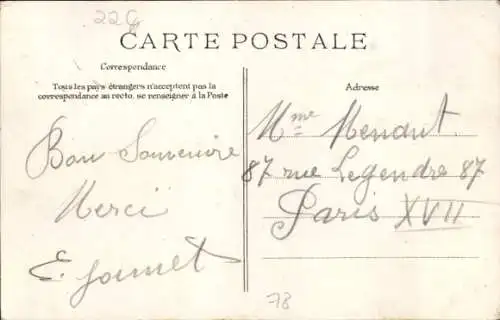 22G
CARTE POSTALE
Correspondance
Tous les pays étrangers n'acceptent pas la
correspondance au recto, se renseigner à la Poste
Bon Souvenire
Merci
E.
Adresse
Mme Menant.
87 rue Legendre 87
Paris XVII
78